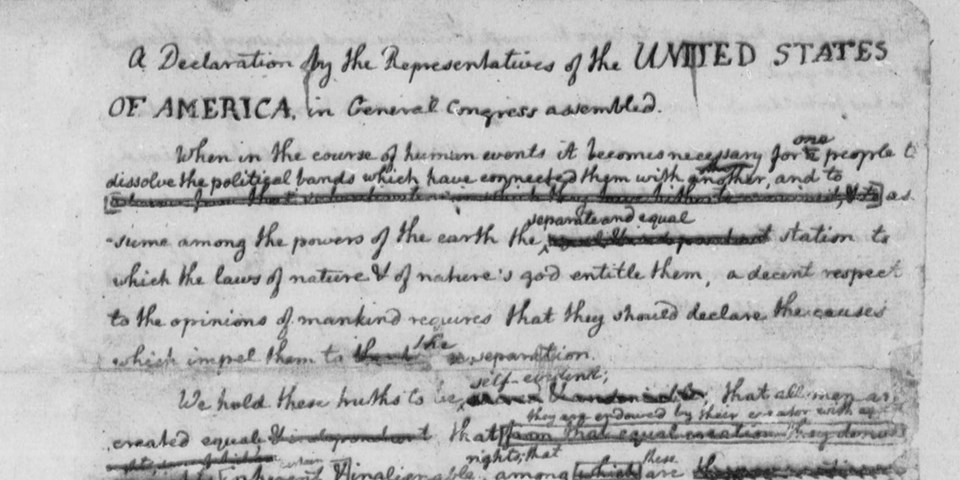 A Declaration by the Representatives of the UNITED STATES
OF AMERICA, in General Congress assembled.
When in the course of human events it becomes necessary for one people t
dissolve the political bands which have connected them with another, and to
as
separate and equal
-sume among the powers of the earth the station to
which the laws of nature & of nature's god entitle them, a decent respect
to the opinions of mankind requires that they should declare the causes
the
which impel them to separation.
self-evident;
We hold these truths to be that all men ar
they are endowed by their creator with
created equal & independant that from that equal creation they
rights; that these
inherent & inalienable, among which are